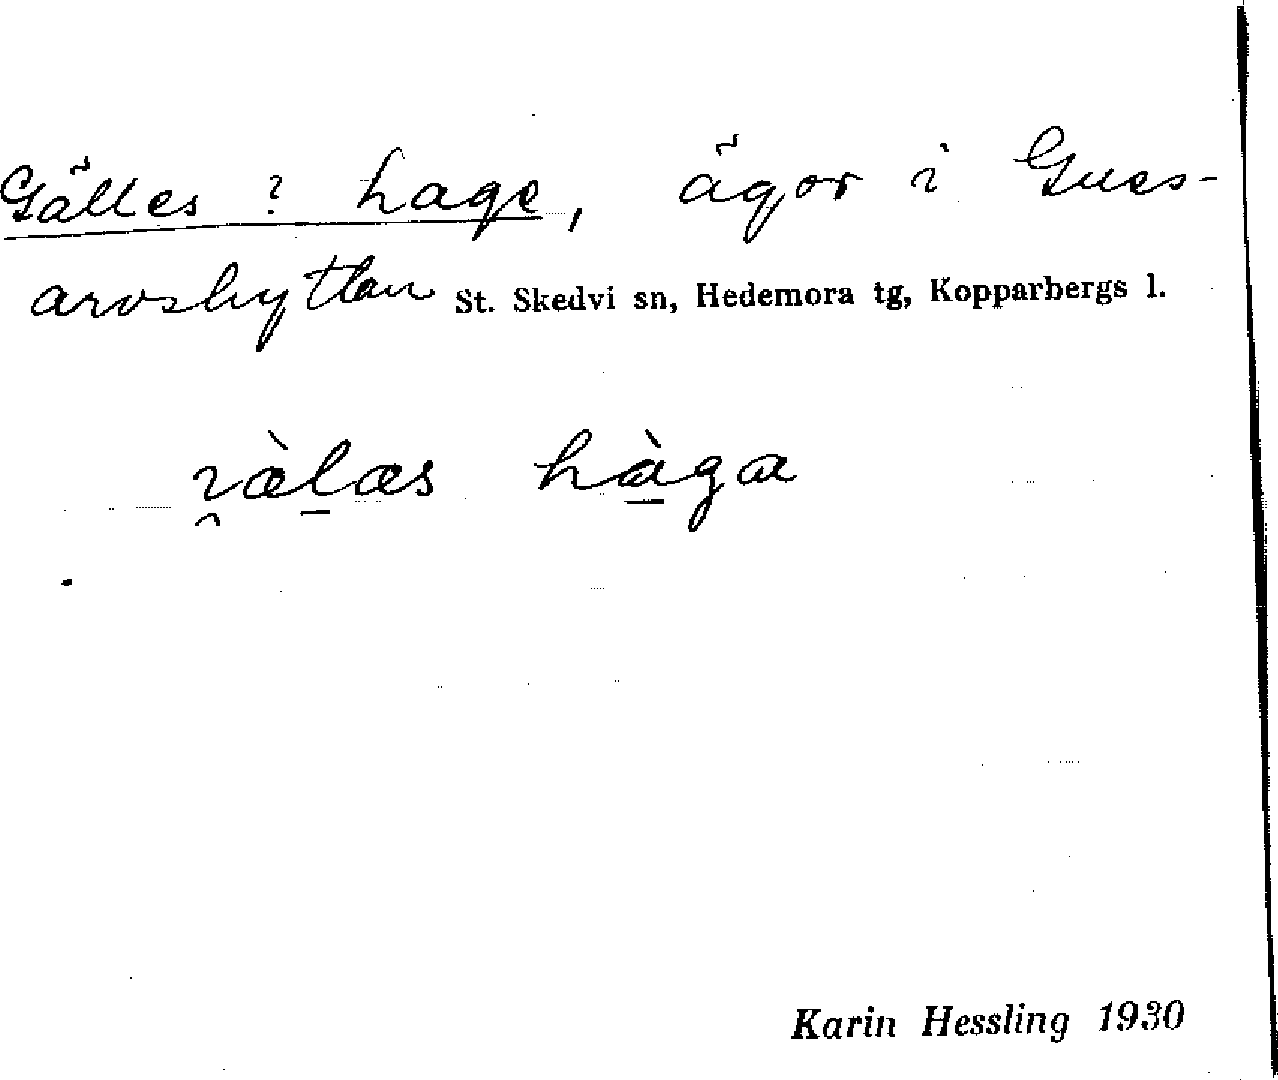 Gälles ? hage, ägor i Guss-
arvshyttan St. Skedvi sn, Hedemora tg, Kopparbergs l.
hàga
Karin Hessling 1930